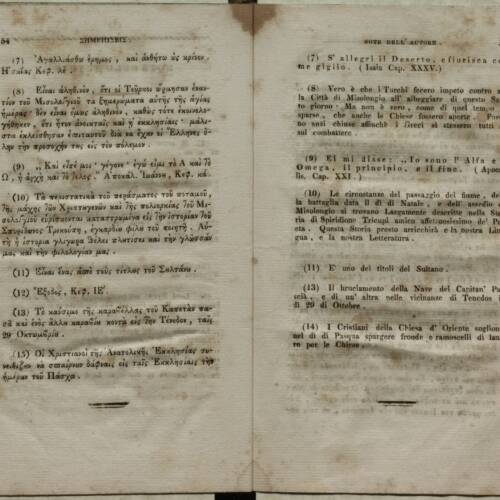 54 ΣΗΜΕΙΩΣΕΙΣ.
(7) Ἀγαλλιάσθω ἔρημος, καὶ ἀνθήτω ὡς κρίνον.
Ἡσαΐας Κεφ. λέ.
(8) Εἶναι ἀληθινὸν, ὅτι οἱ Τοῦρκοι ὥρμησαν ἐναν-
τίον τοῦ Μισολογγίου τὰ ξημερώματα αὐτῆς τῆς ἁγίας
ἡμέρας· δὲν εἶναι ὅμως ἀληθινὸν, καθὼς τότε ἐκοινολο-
γήθηκεν, ὅτι ἦτον ἀνοικταὶς καὶ ᾑ ἐκκλησίαις· μάλι-
στα ἐκλείσθησαν ἐπιταυτοῦ διὰ νὰ ἔχουν οἱ Ἕλληνες ὅ-
λην τὴν προσοχήν τους εἰς τὸν πόλεμον.
(9) „ Καὶ εἶπέ μοι· γέγονε· ἐγώ εἰμι τὸ Α καὶ τὸ
Ω, ἡ ἀρχὴ καὶ τὸ τέλος. Ἀποκάλ. Ἰωάνν. Κεφ. κά.
(10) Τὰ περιστατικὰ τοῦ περάσματος τοῦ ποταμοῦ,
τῆς μάχης τῶν Χριστουγεννῶν καὶ τῆς πολιορκίας τοῦ Με-
σολογγίου εὑρίσκονται καταστρωμένα εἰς τὴν ἱστορίαν τοῦ
Σπυρίδωνος Τρικούπη, ἐγκαρδίου φίλου τοῦ ποιητῆ. Αὐ-
τὴ ἡ ἱστορία γλίγωρα θέλει πλουτίσει καὶ τὴν γλῶσσάν
μας καὶ τὴν φιλολογίαν μας.
(11) Εἶναι ἕνας ἀπὸ τοὺς τίτλους τοῦ Σουλτάνου.
(12) Ἔξοδος, Κεφ. ΙΕ΄.
(13) Τὸ καύσιμο τῆς καραβέλλας τοῦ Καπετὰν πα-
σᾶ καὶ ἑνὸς ἄλλου καραβίου κοντὰ εἰς τὴν Τένεδον, ταῖς
29 Ὀκτωμβρίου.
(15) Οἱ Χριστιανοὶ τῆς Ἀνατολικῆς Ἐκκλησίας συ-
νειθίζουν νὰ σπαίρνουν δάφναις εἰς ταῖς Ἐκκλησίαις τὴν
ἡμέραν τοῦ Πάσχα.
NOTE DELL' AUTORE.
(7) S' allegri il Deserto, e fiorisca co
me giglio. (Isaia Cap. XXXV.)
(8) Vero è che i Turchi fecero impeto contro
la Città di Missolongio all' albeggiare di questo Sa
to giorno. Ma non è vero, come di quel tem
sparse, che anche le Chiese fossero aperte. For
no anzi chiuse affinchè i Greci si stessero tutti
sul combattere.
(9) Ei mi disse: „Io sono l' Alfa e
Omega, il principio, e il fine. (Apoc
lis. Cap. XXI.)
(10) Le circostanze del passaggio del fiume, de
la battaglia data il dì di Natale, e dell' assedio
Missolongio si trovano largamente descritte nella Sto
ria di Spiridione Tricupi amico affettuosissimo de' Po
eta. Questa Storia presto arricchirà e la nostra Lin
gua, e la nostra Letteratura.
(11) E' uno dei titoli del Sultano.
(13) Il bruciamento della Nave del Capitan' Pa
scià, e di un' altra nelle vicinanze di Tenedos
di 29 di Ottobre.
(14) I Cristiani della Chiesa d' Oriente soglion
nel dì di Pasqua spargere fronde e ramoscelli di lau
ro per le Chiese.